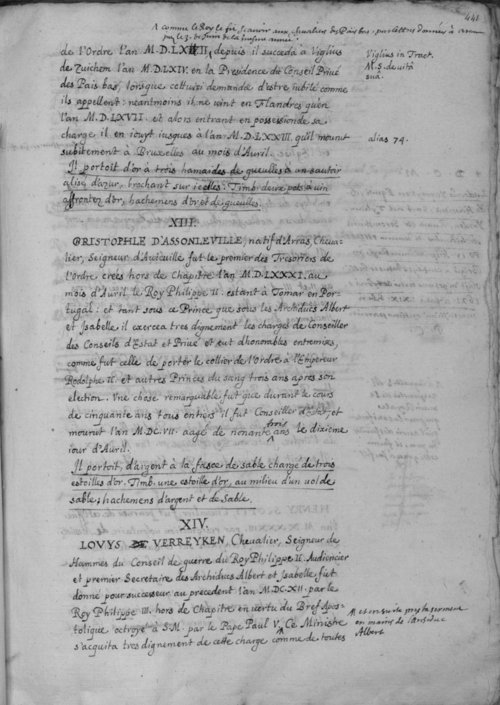 441
A comme le Roy le fit scavoir aux chevaliers des Pais bas, par lettres données à
par le 3. de Juin de la mesme année.
de l'Ordre l'an M.D.LXIII, depuis il succeda à Viglius
de Zuichem l'an M.D.LXIV. en la Presidence du Conseil Privé
des Pais bas, lorsque cettuici demanda d'estre iubilé comme
ils appellent: neantmoins il ne vint en Flandres qu'en
l'an M.D.LXVII. et alors entrant en possession de sa
charge il en iouyt iusques à l'an M.D.LXXIII. qu'il mourut
subitement à Bruxelles au mois d'Avril.
Il portoit d'or à trois hamaides de gueulles à un sautoir
alisé d'azur, brochant sur icelles: Timb. deux pals à vin
affrontez d'or, hachemens d'or et de gueulles.
Viglius in Tract.
M.S. de vitâ
suâ.
alias 74.
XIII.
CRISTOPHLE D'ASSONLEVILLE, natif d'Arras, Cheva-
lier, Seigneur d'Auteuille fut le premier des Tresoriers de
l'Ordre creés hors de Chapitre l'an M.D.LXXXI. au
mois d'Avril le Roy Philippe II. estant à Tomar en Por-
tugal: et tant sous ce Prince que sous les Archiducs Albert
et Isabelle, il exercea tres dignement les charges de Conseiller
des Conseils d'Estat et Privé et eut d'honorables entremises,
comme fut celle de porter le collier de l'Ordre à l'Empereur
Rodolphe II. et autres Princes du sang trois ans apres son
election. Une chose remarquable fut que durant le cours
de cinquante ans tous entiers il fut Conseiller d'Estat, et
mourut l'an M.DC.VII. aagé de nonante trois ans le dixieme
iour d'Avril.
Il portoit, d'argent à la fasce de sable chargé de trois
estoilles d'or. Timb. une estoille d'or, au milieu d'un vol de
sable; hachemens d'argent et de Sable.
XIV.
LOUYS DE VERREYKEN, Chevalier, Seigneur de
Hammes du Conseil de guerre du Roy Philippe II. Audiencier
et premier Secretaire des Archiducs Albert et Isabelle fut
donné pour successeur au precedent l'an M.DC.XII. par le
Roy Philippe III. hors de Chapitre en vertu du Bref Apos-
tolique octroyé à S.M. par le Pape Paul V. Ce Ministre
s'acquita tres dignement de cette charge comme de toutes
et en suite presta serment
en mains de l'Archiduc
Albert